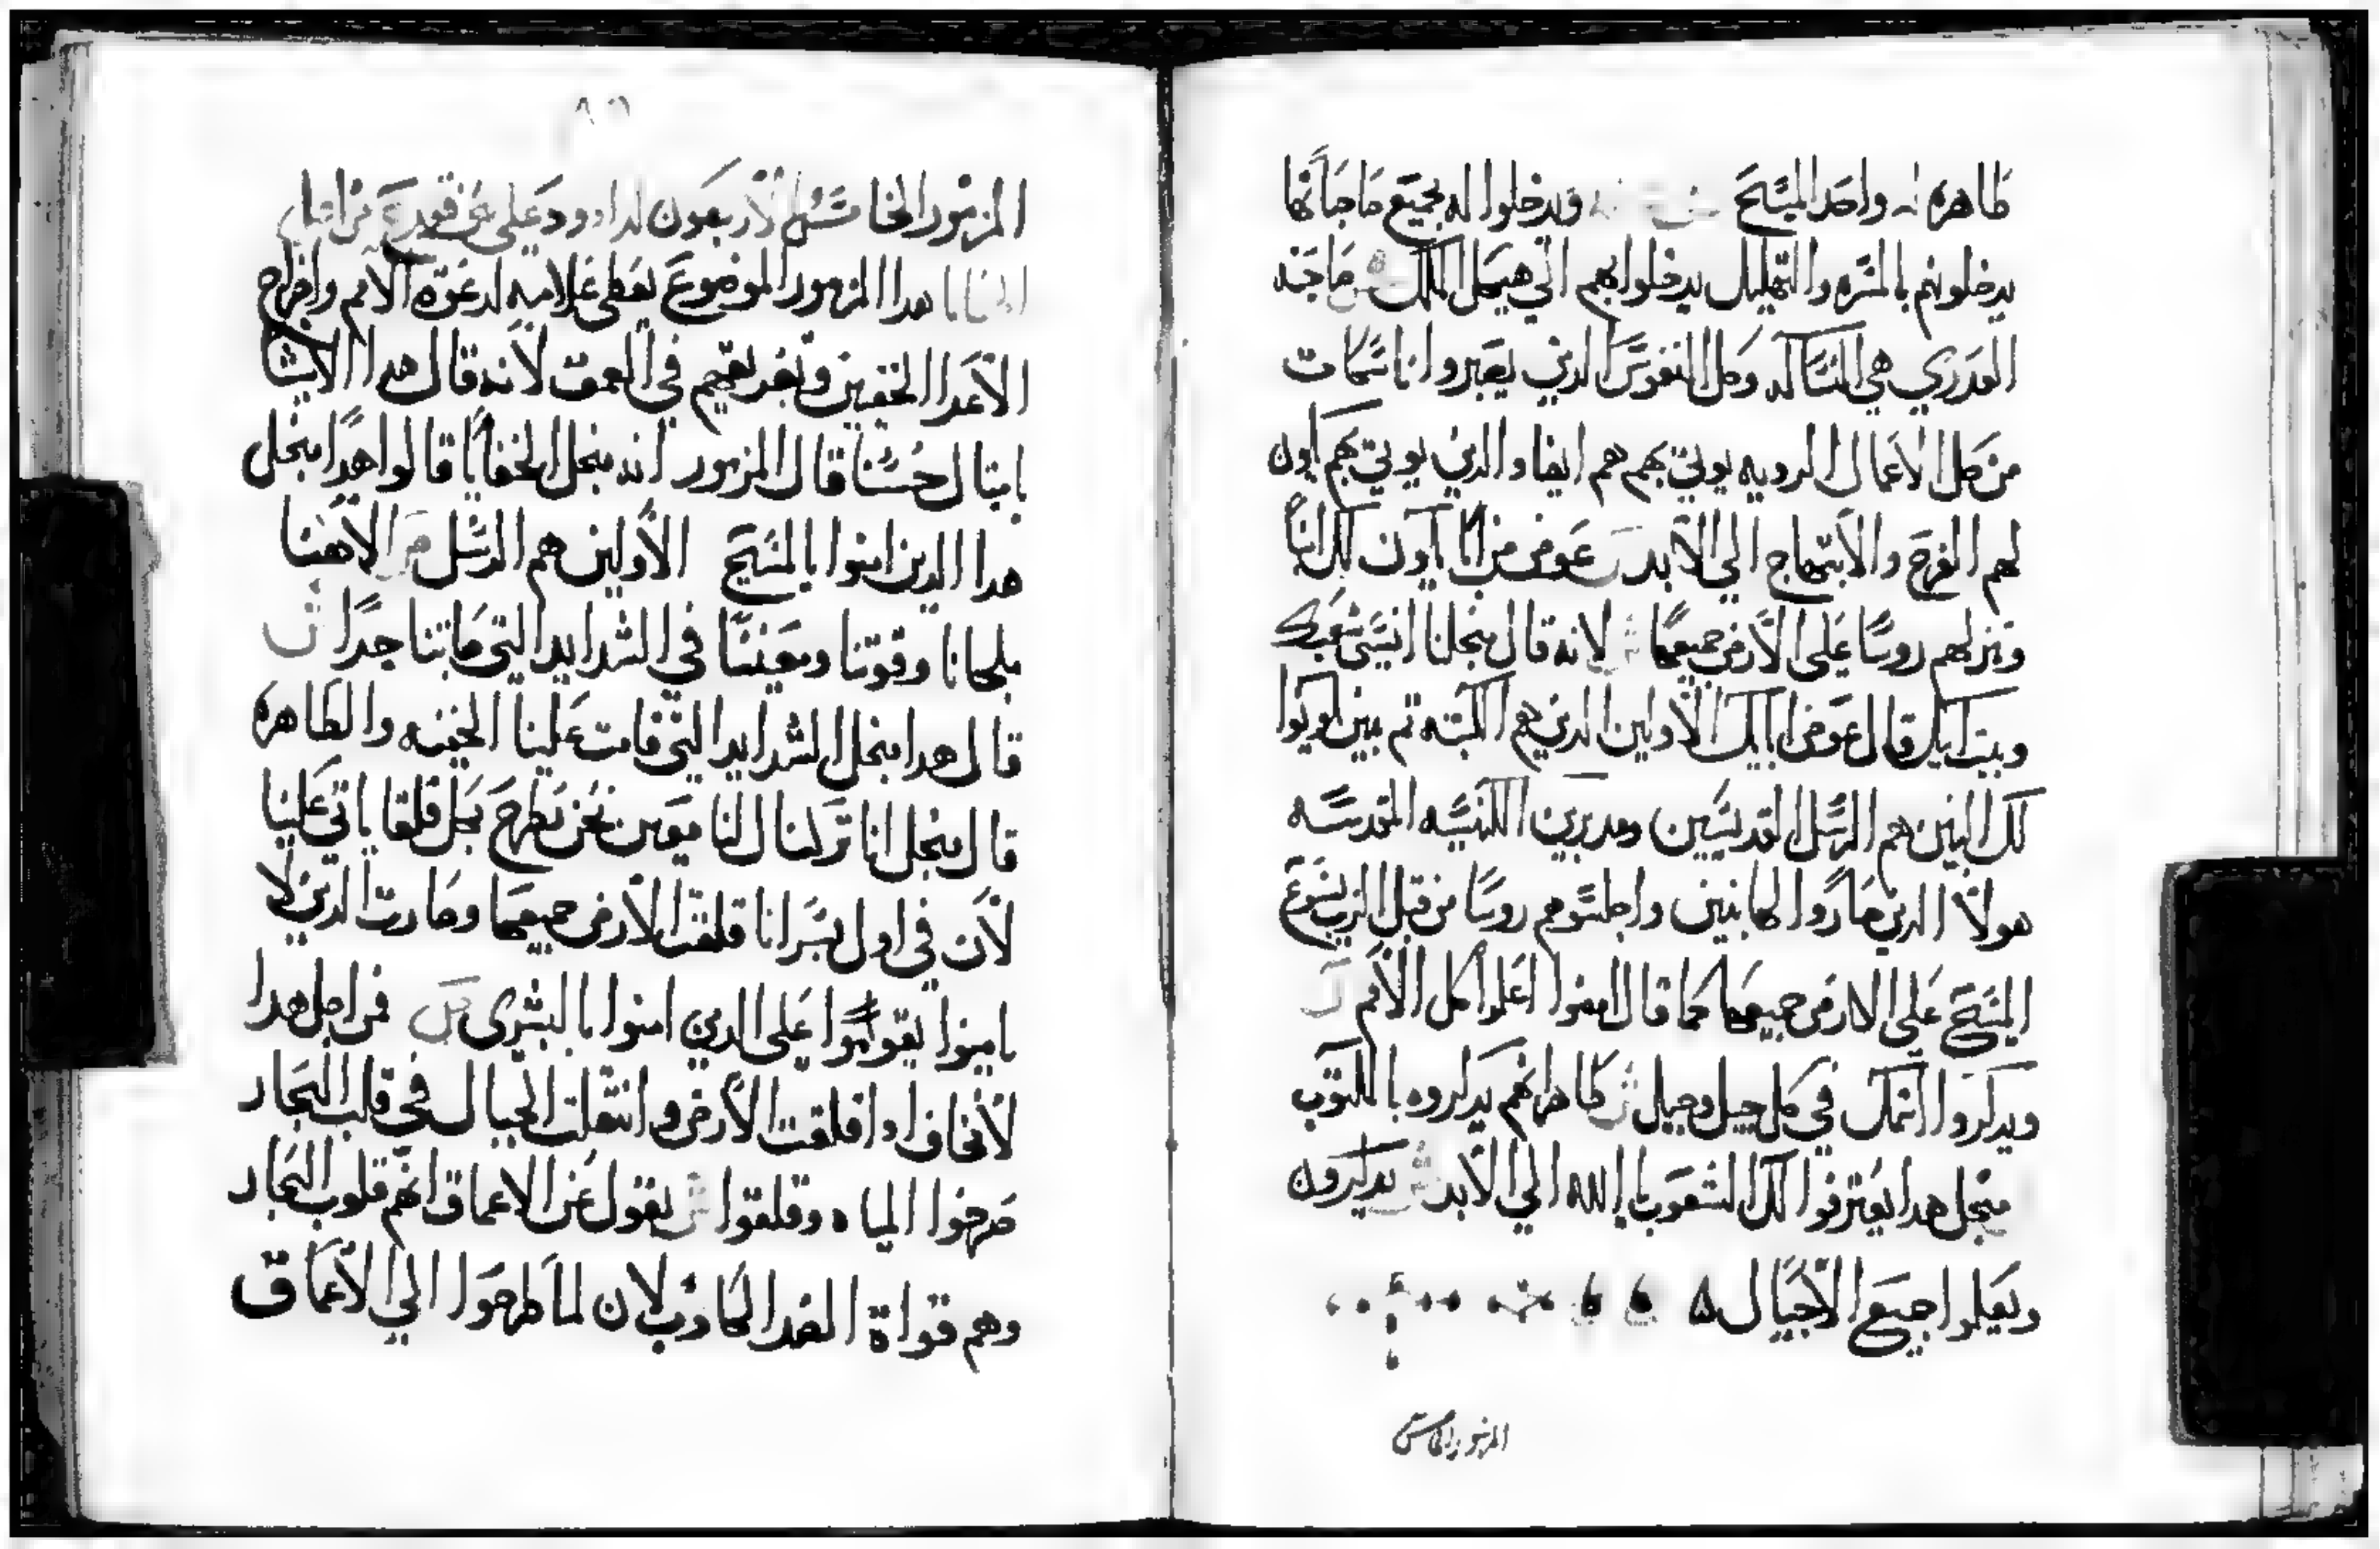 طاهره له واحد المسَيح ويدخلوا له بجميع صاحباتها
يدخلونهم بالمسره والتهليل يدخلوا بهم الي هيكل الملك ش صاحبه
العدري هي الكنيسه وكل النفوس الدين يصيروا ناسكات
من كل الاعمال الرديه يوتي بهم هم ايضا والدين يوتي بهم يكون
لهم الفرح والابتهاج الي الابد عوض من اباك يكون لك ابنا
وتنزلهم روسًا علي الارض جميعها ش لانه قال منجل انسي شعبك
وبيت ابيك قال عوض ابايك الاولين الدين هم الكتبه تم بنين يكونوا
لك البنين هم الرسل القديسين ومديرين الكنيسه المقدسه
هولاء الدين صاروا لها بنين واجلسوهم روسا من قبل الرب يسوع
المسَيح علي الارض جميعها كما قال امضوا اعلموا كل الامم
ويدكروا اسمك في كل جيل وجيل ش ظاهر انهم يدكروه بالكتوب
منجل هدا يعترفوا لك الشعوب يا الله الي الابد ش يدكرون
ويعلموا جميع الاجيال ه
المزمور الخامس
٨٥
المزمور الخامس والاربعون لداوود علي بني قورح من اجل
الخفايا هدا المزمور الموضوع يعطي علاميه لدعوة الامم واخراج
الاعدا الخفيين وتغريقهم في العمق لانه قال هدا الاشيا
باتبال حسنا قال المزمور انه منجل الخفايا قالوا هدا منجل
هدا الدين امنوا بالمسَيح الاولين هم الرسل مز الاهنا
ملجانا وقوتنا ومعيننا في الشدايد التي صابتنا جدًا ش
قال هدا منجل الشدايد التي قامت علينا الخفيه والظاهره
قال منجل انا تركنا لنا معين نحن نطرح بكل قلقا ياتي علينا
لان في اول بشرانا قلقت الارض جميعها وصارت الدين لا
يامنوا يقوموا علي الدين امنوا بالبشرى من اجل هدا
لانخاف ادا قلقت الارض وانتقلت الجبال في قلب البحار
صرخوا المياه وقلقوا ش يقول عن الاعماق انهم قلوب البحار
وهم قواة الضد الكادب لان لما طرحوا الي الاعماق